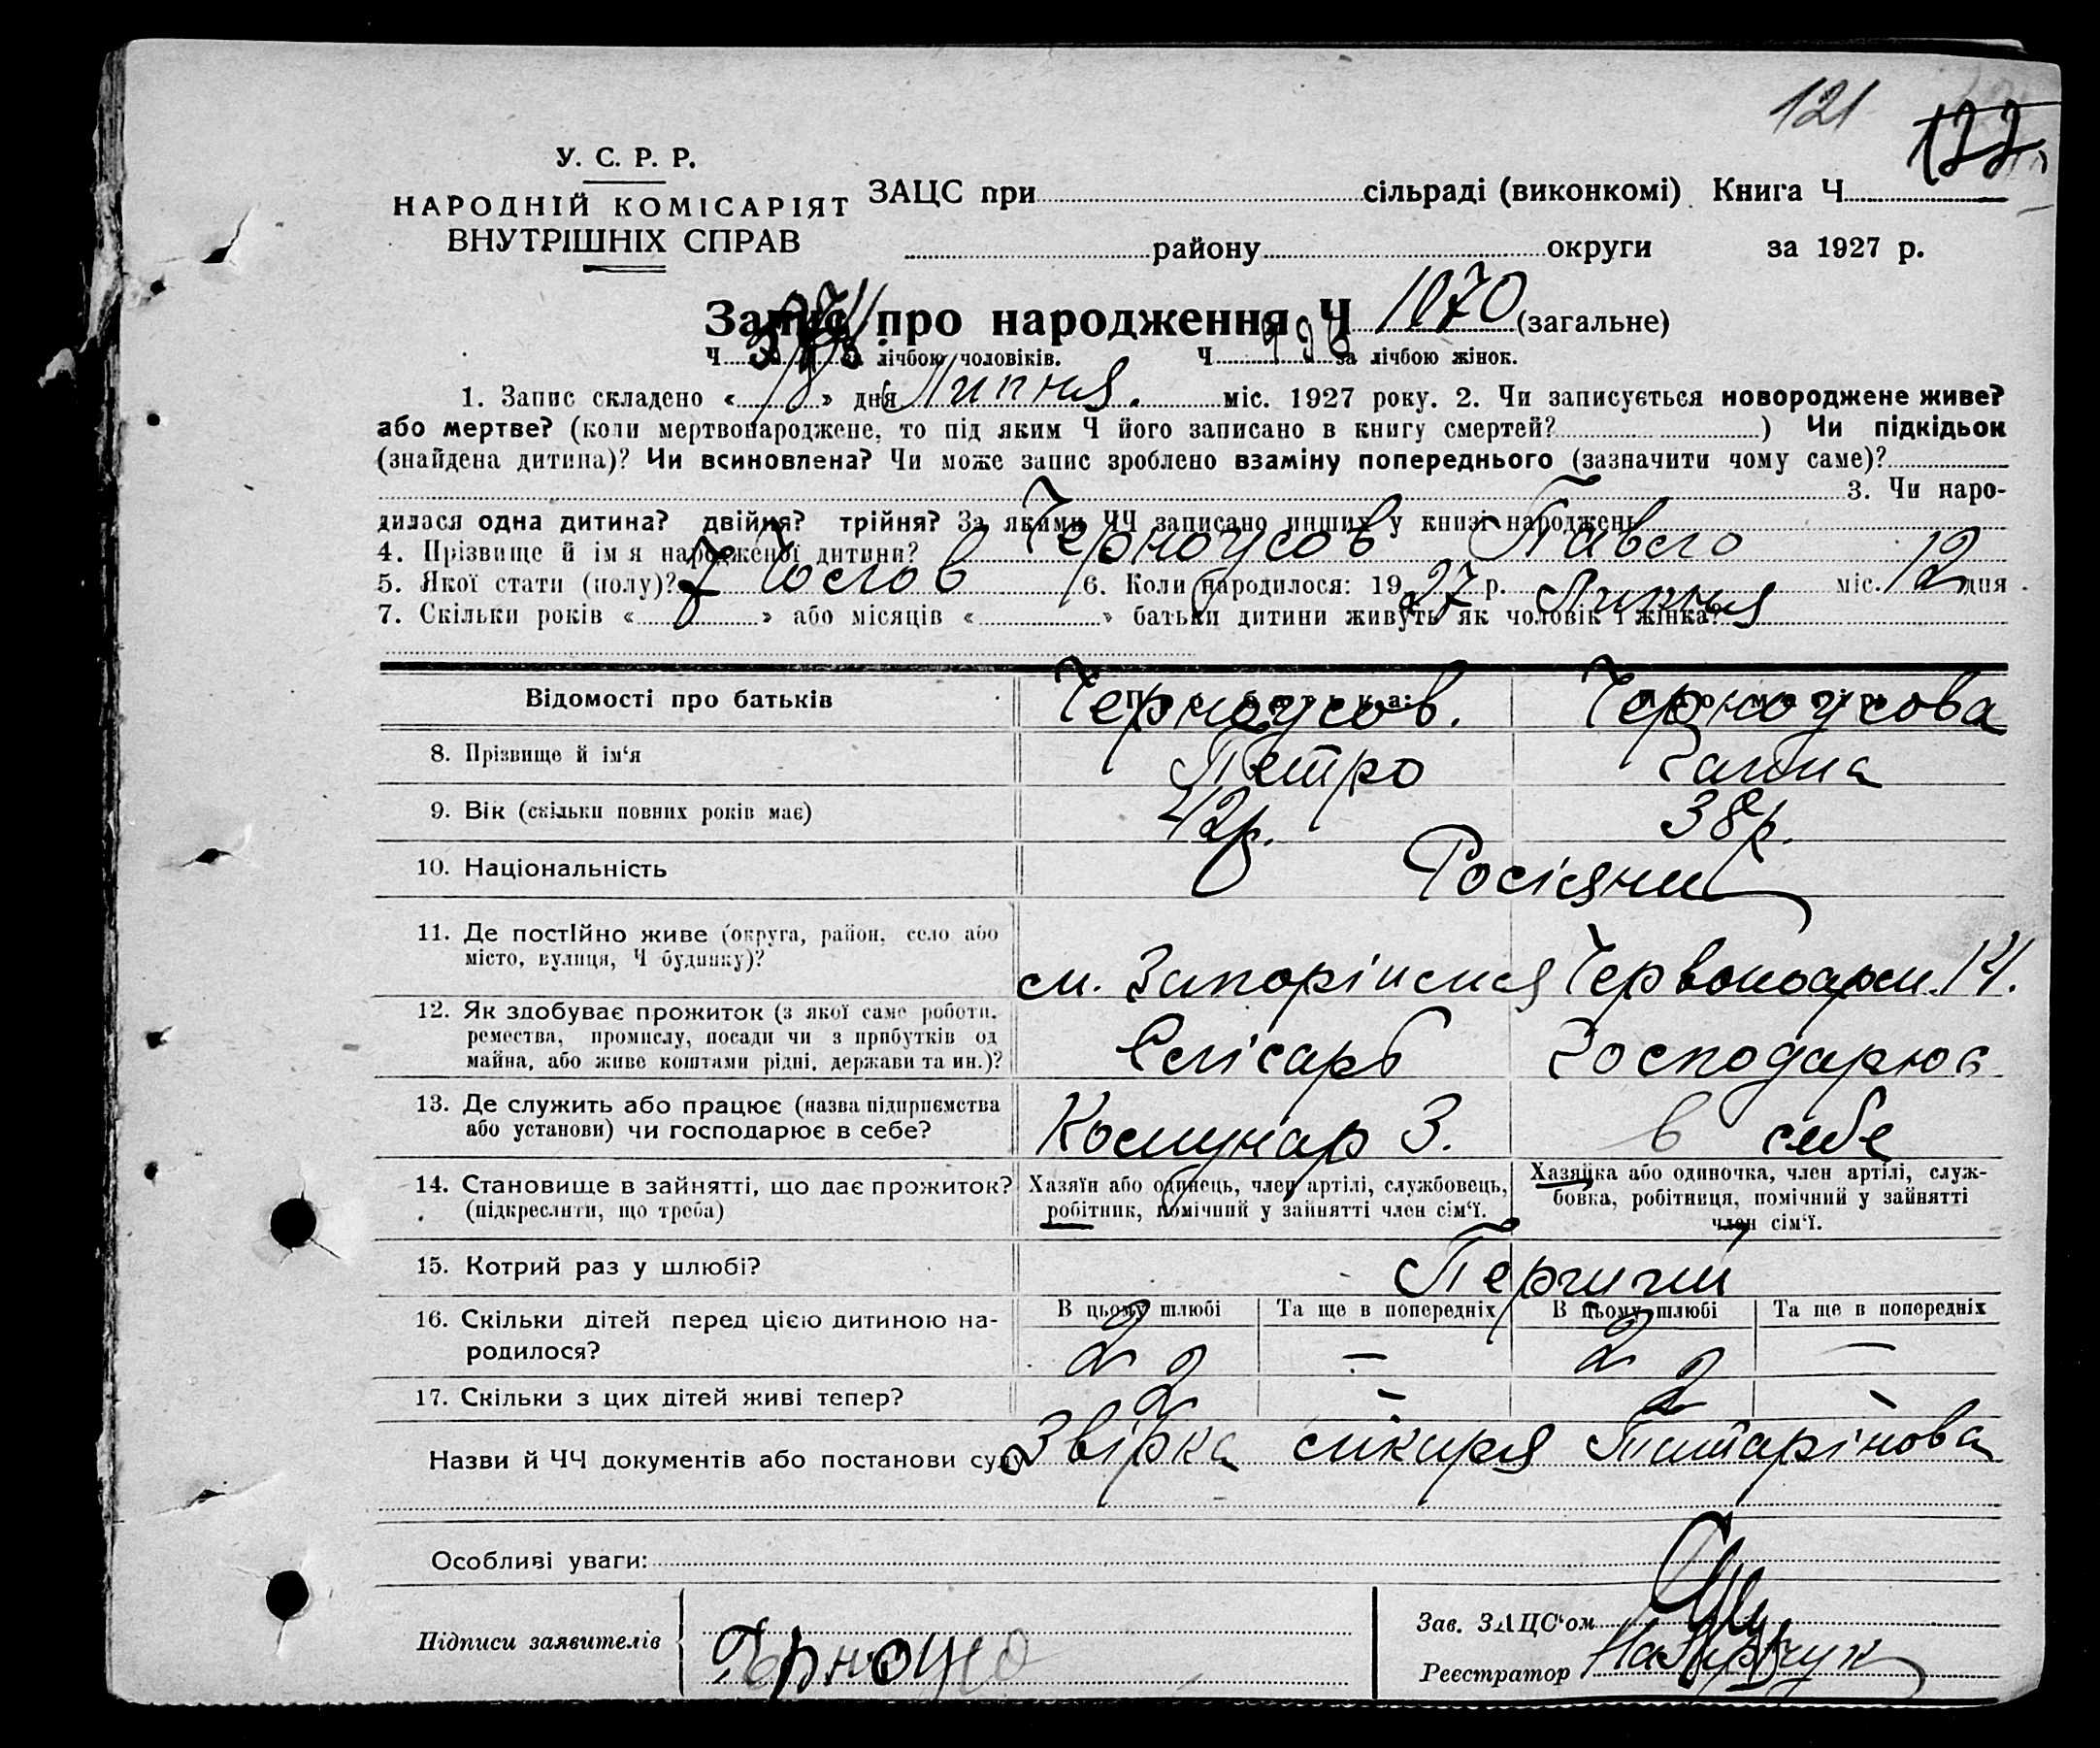 121 122
У. С. Р. Р.
НАРОДНІЙ КОМІСАРІЯТ
ВНУТРІШНІХ СПРАВ
ЗАЦС при сільраді (виконкомі) Книга Ч
району округи за 1927 р.
Запис про народження Ч 1070 (загальне)
Ч за лічбою чоловіків. Ч 996 за лічбою жінок.
1. Запис складено « 18 » дня Липня. міс. 1927 року. 2. Чи записується новороджене живе?
або мертве? (коли мертвонароджене, то під яким Ч його записано в книгу смертей? ) Чи підкідьок
(знайдена дитина)? Чи всиновлена? Чи може запис зроблено взаміну попереднього (зазначити чому саме)?
3. Чи наро-
дилася одна дитина? двійня? трійня? За якими ЧЧ записано инших у книзі народжень
4. Прізвище й ім я народженої дитини? Черноусов Павело
5. Якої стати (полу)? Чолов 6. Коли народилося: 1927 р. Липня міс. 12 дня
7. Скільки років « 7 » або місяців « » батьки дитини живуть як чоловік і жінка?
Відомості про батьків Про батька: Про матір:
Черноусов. Черноусова
8. Прізвище й ім‘я Петро Ганна
9. Вік (скільки повних років має) 42р. 38р.
10. Національність Росіяни
11. Де постійно живе (округа, район, село або
місто, вулиця, Ч будинку)? м. Запоріжжя Червоноарм. 14.
12. Як здобуває прожиток (з якої саме роботи,
ремества, промислу, посади чи з прибутків од
майна, або живе коштами рідні, держави та ин.)? Слісарь Господарює
13. Де служить або працює (назва підприємства
або установи) чи господарює в себе? Комунар З. в себе
14. Становище в зайнятті, що дає прожиток?
(підкреслити, що треба)
Хазяїн або одинець, член артілі, службовець,
робітник, помічний у зайнятті член сім‘ї.
Хазяйка або одиночка, член артілі, служ-
бовка, робітниця, помічний у зайнятті
член сім‘ї.
15. Котрий раз у шлюбі? Перший
В цьому шлюбі Та ще в попередніх В цьому шлюбі Та ще в попередніх
16. Скільки дітей перед цією дитиною на-
родилося? 2 — 2 —
17. Скільки з цих дітей живі тепер? 2 — 2 —
Назви й ЧЧ документів або постанови суду Звірка лікаря
Особливі уваги:
Підписи заявителів
Зав. ЗАЦС‘ом
Реєстратор